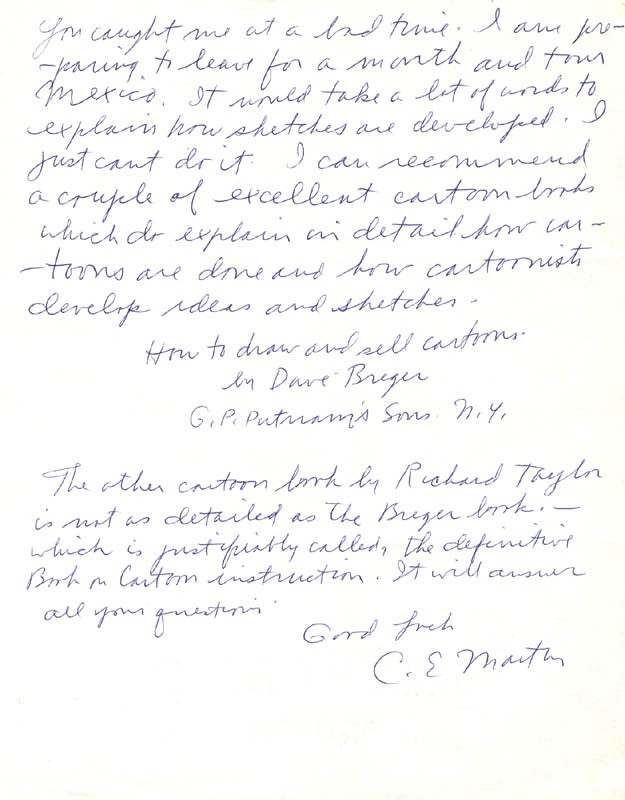 You caught me at a bad time. I am pre-
-paring to leave for a month and tour
Mexico. It would take a lot of words to
explain how sketches are developed. I
just cant do it. I can recommend
a couple of excellent cartoon books
which do explain in detail how car-
-toons are done and how cartoonists
develop ideas and sketches -
How to draw and sell cartoons.
by Dave Breger
G. P. Putnam's Sons. N.Y.
The other cartoon book by Richard Taylor
is not as detailed as the Breger book. -
which is justifiably called, the definitive
Book on Cartoon instruction. It will answer
all your questions.
Good Luck
C. E Martin